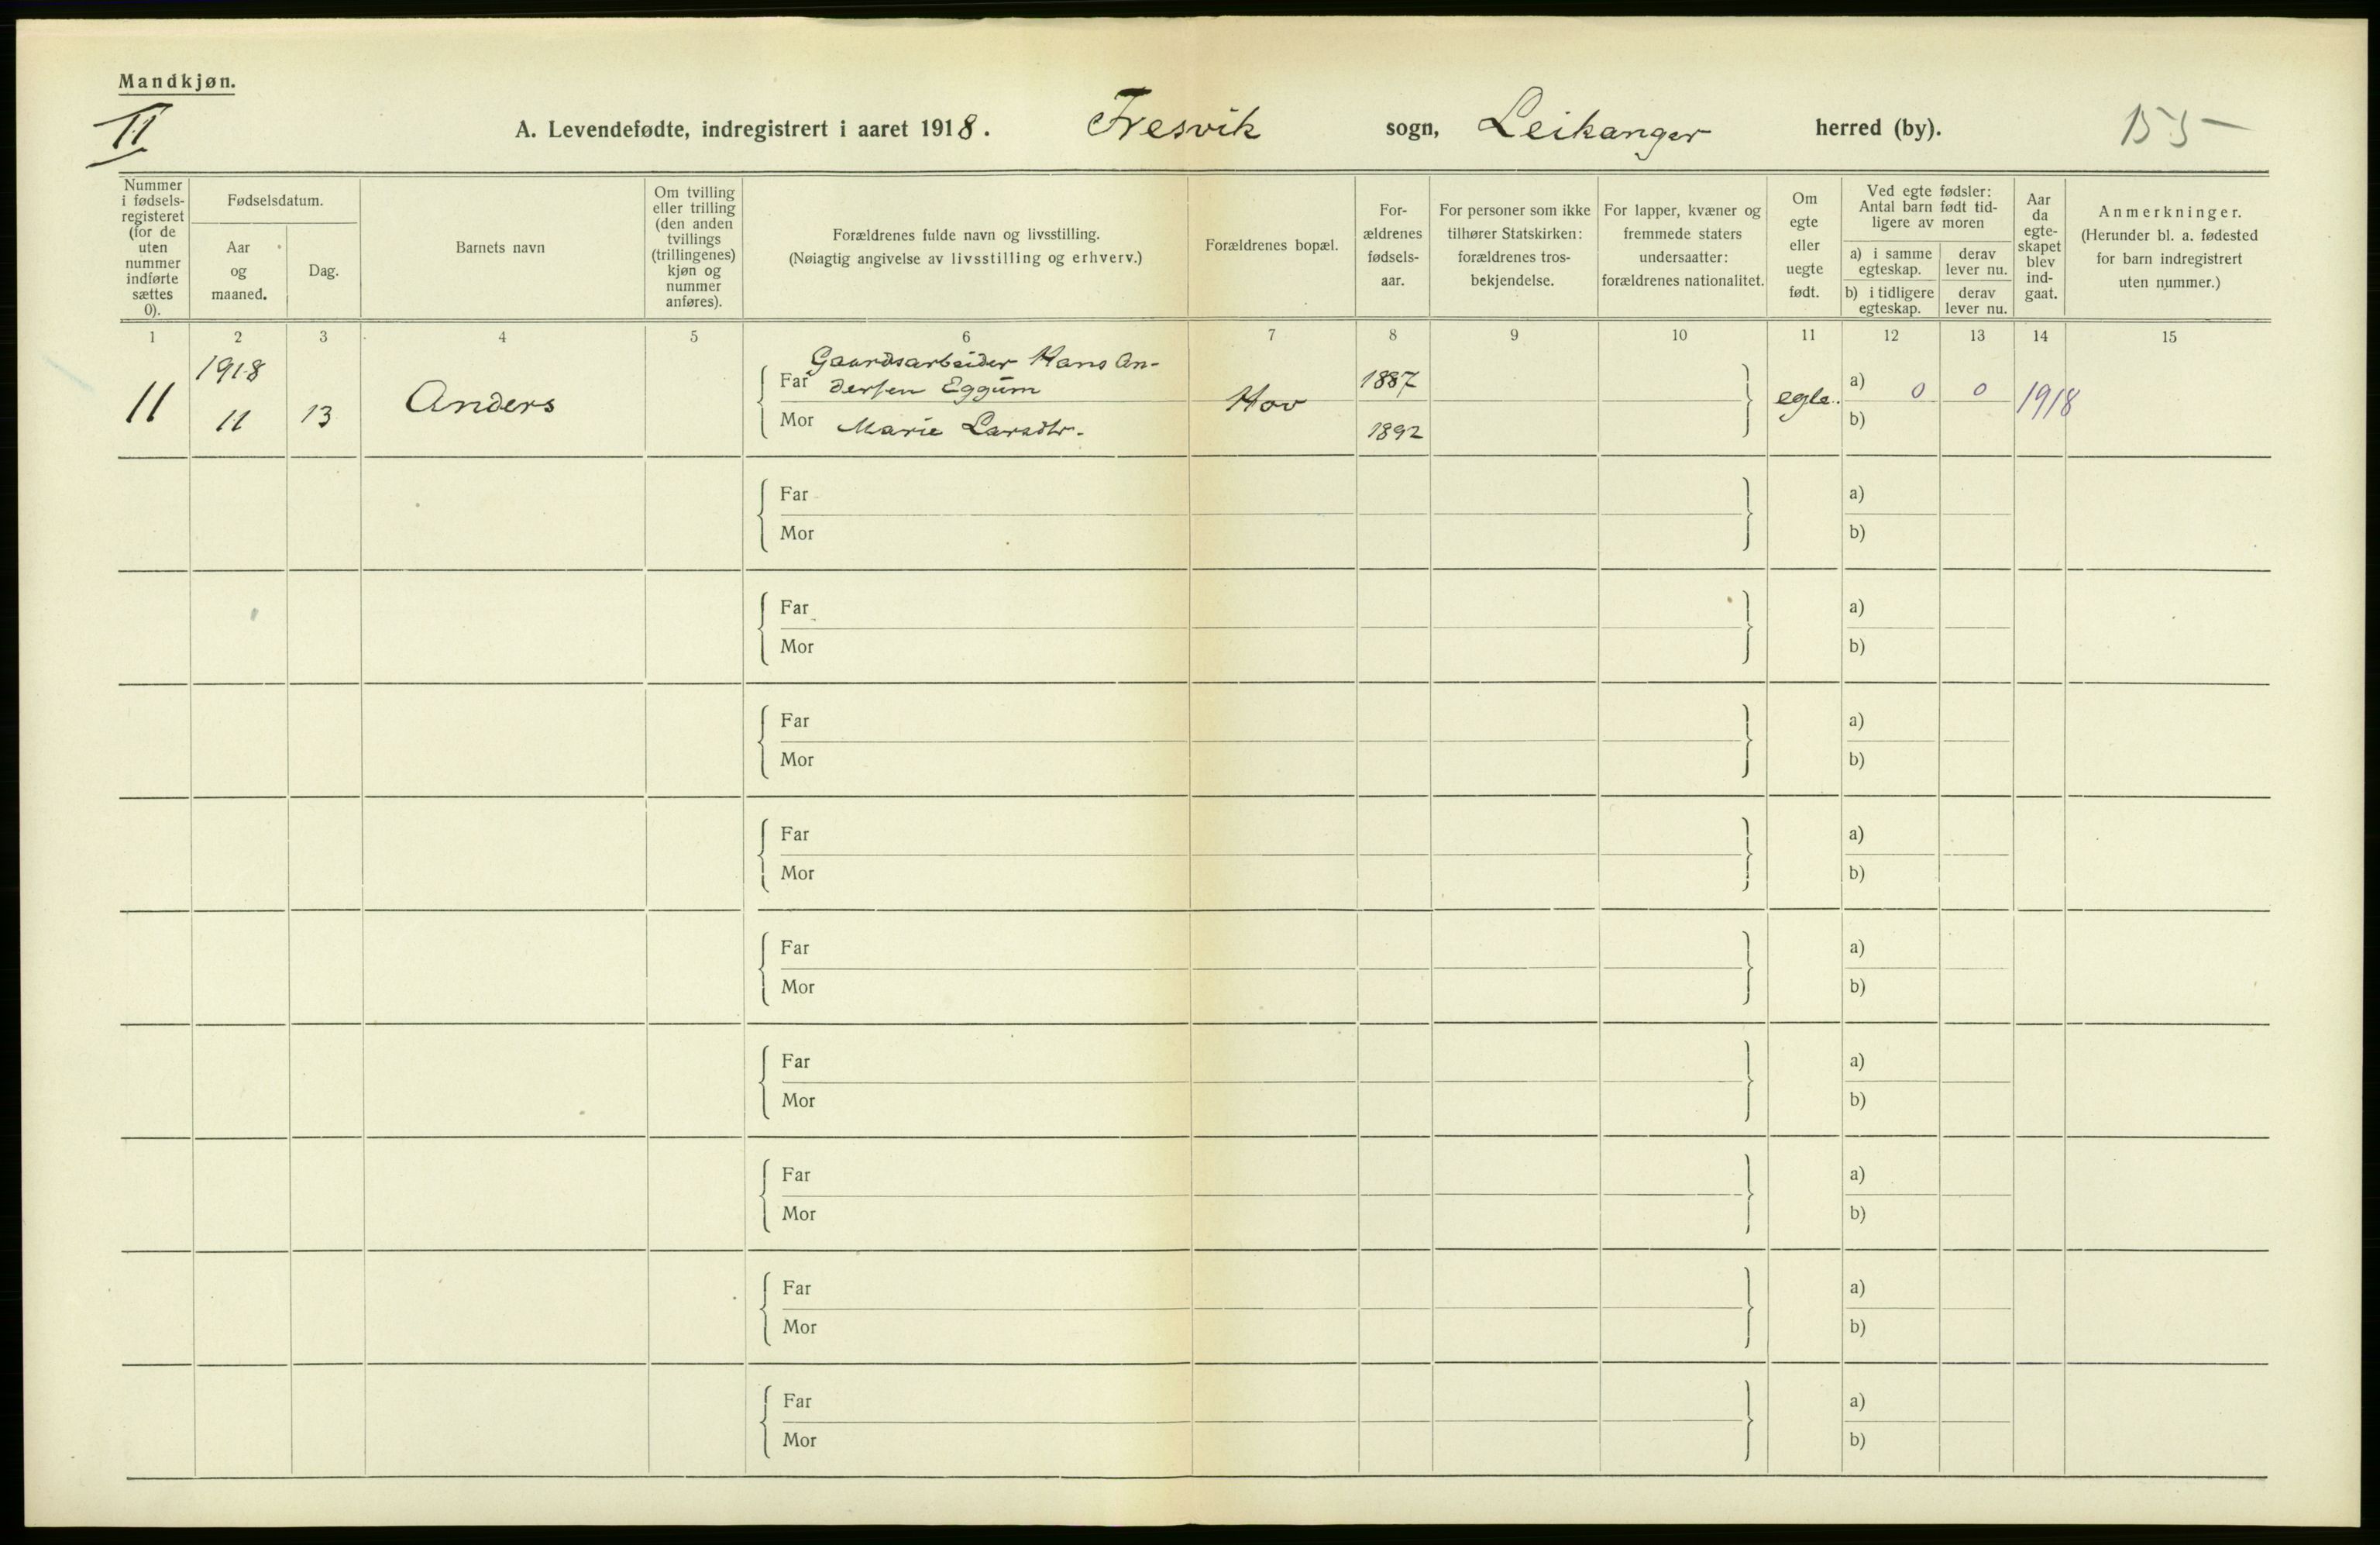 Mandkjøn.
II
A. Levendefødte, indregistrert i aaret 1918. Fresvik sogn, Leikanger herred (by). 155
Nummer
i fødsels-
registeret
(for de
uten
nummer
indførte
sættes
0).
Fødselsdatum.
Aar
og
maaned.
Dag.
Barnets navn
Om tvilling
eller trilling
(den anden
tvillings
(trillingenes)
kjøn og
nummer
anføres).
Forældrenes fulde navn og livsstilling.
(Nøiagtig angivelse av livsstilling og erhverv.)
Forældrenes bopæl.
For-
ældrenes
fødsels-
aar.
For personer som ikke
tilhører Statskirken:
forældrenes tros-
bekjendelse.
For lapper, kvæner og
fremmede staters
undersaatter:
forældrenes nationalitet.
Om
egte
eller
uegte
født.
Ved egte fødsler:
Antal barn født tid-
ligere av moren
a) i samme
egteskap.
derav
lever nu.
b) i tidligere
egteskap.
derav
lever nu.
Aar
da
egte-
skapet
blev
ind-
gaat.
Anmerkninger.
(Herunder bl. a. fødested
for barn indregistrert
uten nummer.)
1 2 3 4 5 6 7 8 9 10 11 12 13 14 15
11
1918
11
13
Anders
Gaardsarbeider Hans An-
Far dersen Eggum
Mor Marie Larsdtr.
Hov
1887
1892
egte.
a) 0 0
b)
1918
Far a)
Mor b)
Far a)
Mor b)
Far a)
Mor b)
Far a)
Mor b)
Far a)
Mor b)
Far a)
Mor b)
Far a)
Mor b)
Far a)
Mor b)
Far a)
Mor b)